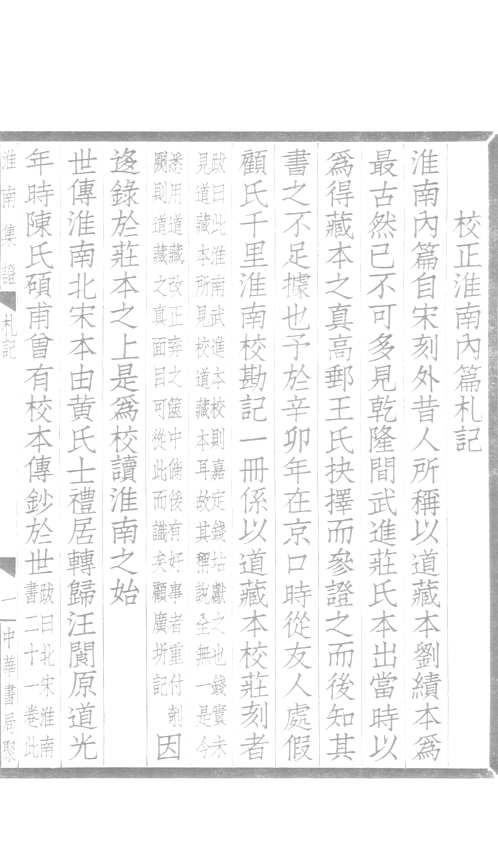 校正淮南內篇札記
淮南內篇自宋刻外昔人所稱以道藏本劉績本爲
最古然已不可多見乾隆間武進莊氏本出當時以
爲得藏本之真高郵王氏抉擇而參證之而後知其
書之不足據也予於辛卯年在京口時從友人處假
顧氏千里淮南校勘記一冊係以道藏本校莊刻者
跋曰此淮南武進本校則嘉定錢坫獻之也錢實未
見道藏本所見校道藏本耳故其釋說全無一是今
悉用道藏改正弃之篋中備後有好事者重付剞
劂則道藏之真面目可從此而識矣顧廣圻記
因
迻錄於莊本之上是爲校讀淮南之始
世傳淮南北宋本由黃氏士禮居轉歸汪閬原道光
年時陳氏碩甫曾有校本傳鈔於世
跋曰北宋淮南
書二十一卷此
淮南集證
札記
一
中華書局聚